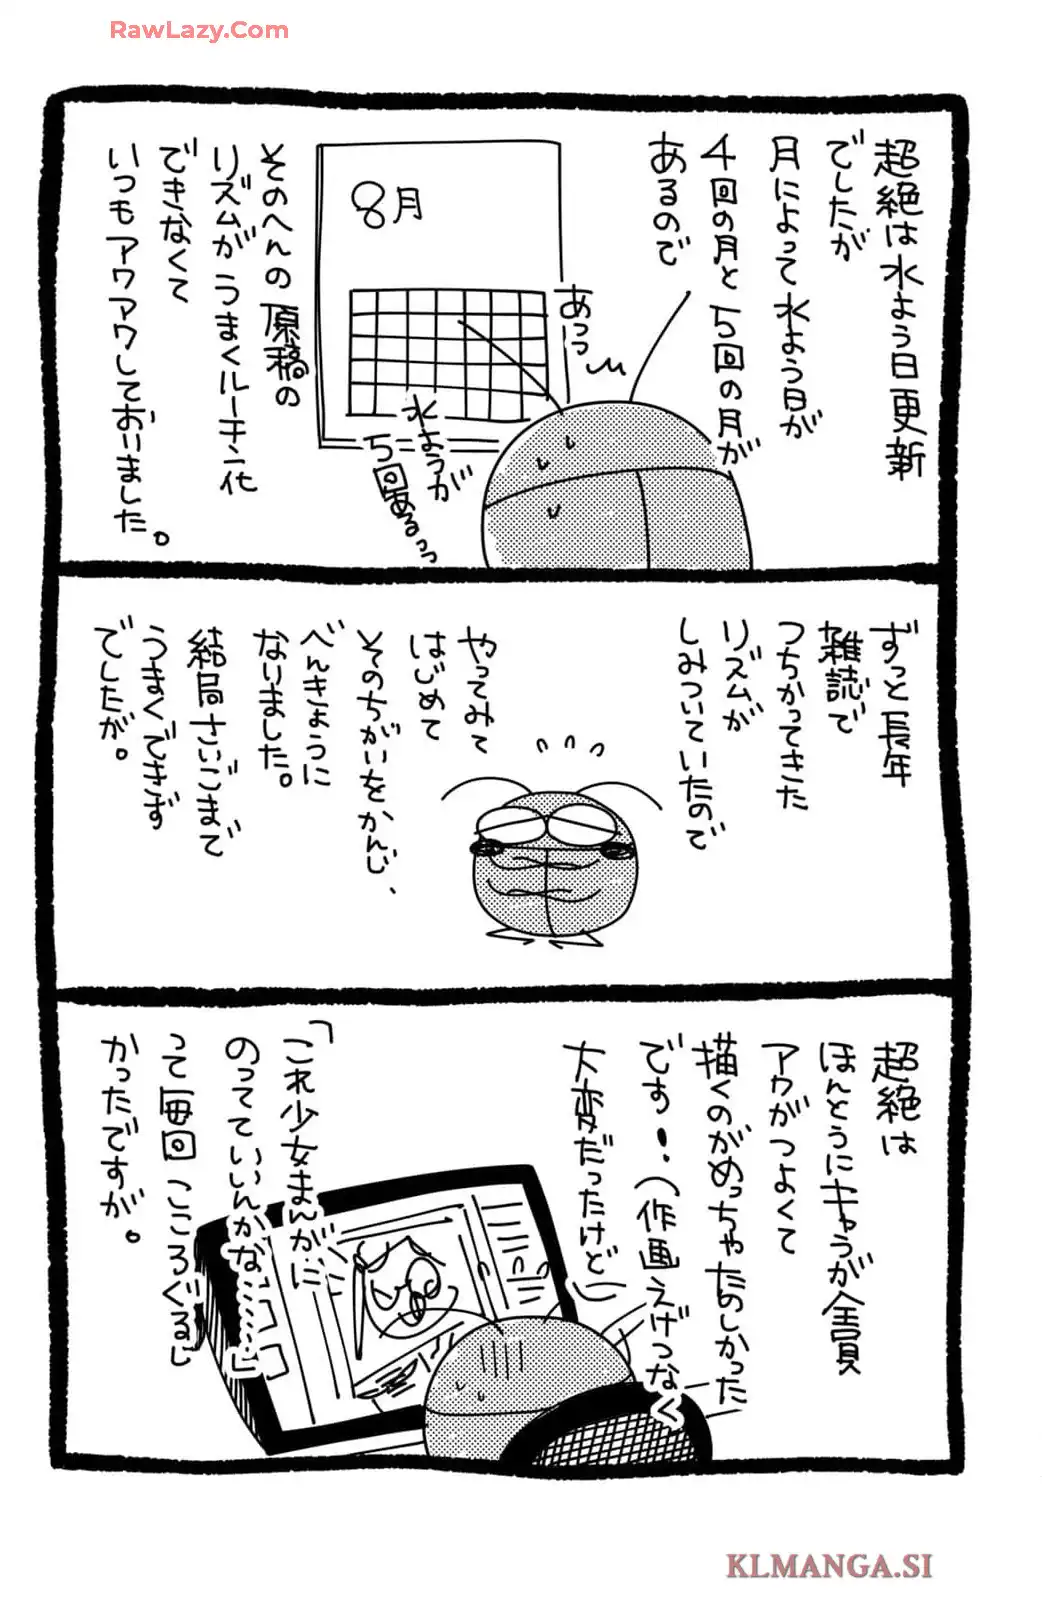 RawLazy.Com
超絶は水よう日更新
でしたが
月によって水よう日が
4回の月と5回の月が
あるので
8月
あっっ
水ようが
5回あるっっ
そのへんの原稿の
リズムがうまくルーチン化
できなくて
いつもアワアワしておりました。
ずっと長年
雑誌で
つちかってきた
リズムが
しみついていたので
やってみて
はじめて
そのちがいをかんじ、
べんきょうに
なりました。
結局さいごまで
うまくできず
でしたが。
超絶は
ほんとうにキャラが全員
アクがつよくて
描くのがめっちゃたのしかった
です!(作画えげつなく
大変だったけど)
「これ少女まんがに
のってていいんかな……」
って毎回こころぐるし
かったですが。
KLMANGA.SI